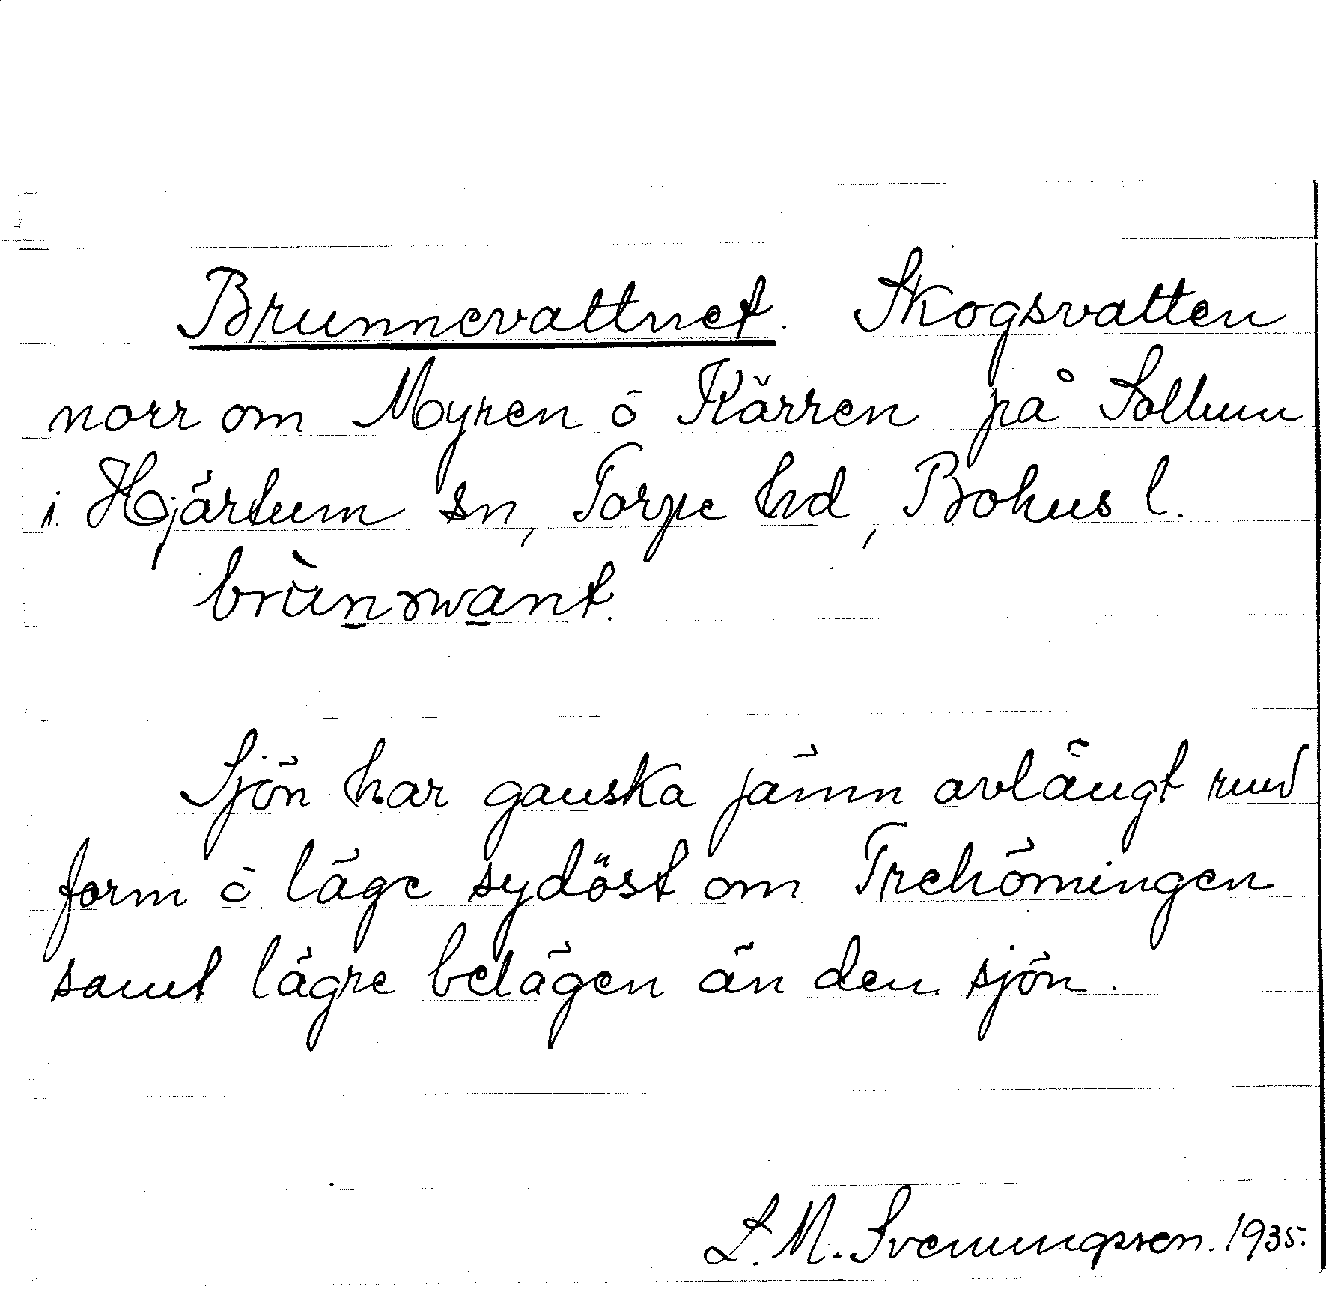 Brunnevattnet. Skogsvatten
norr om Myren ö Kärren på Sollum
i Hjärtum sn, Torpe hd, Bohus l.

Sjön har ganska jämn avlångt rund
form ö läge sydöst om Trehörningen
samt lägre belägen än den sjön.
L. M. Svenungsson. 1935.